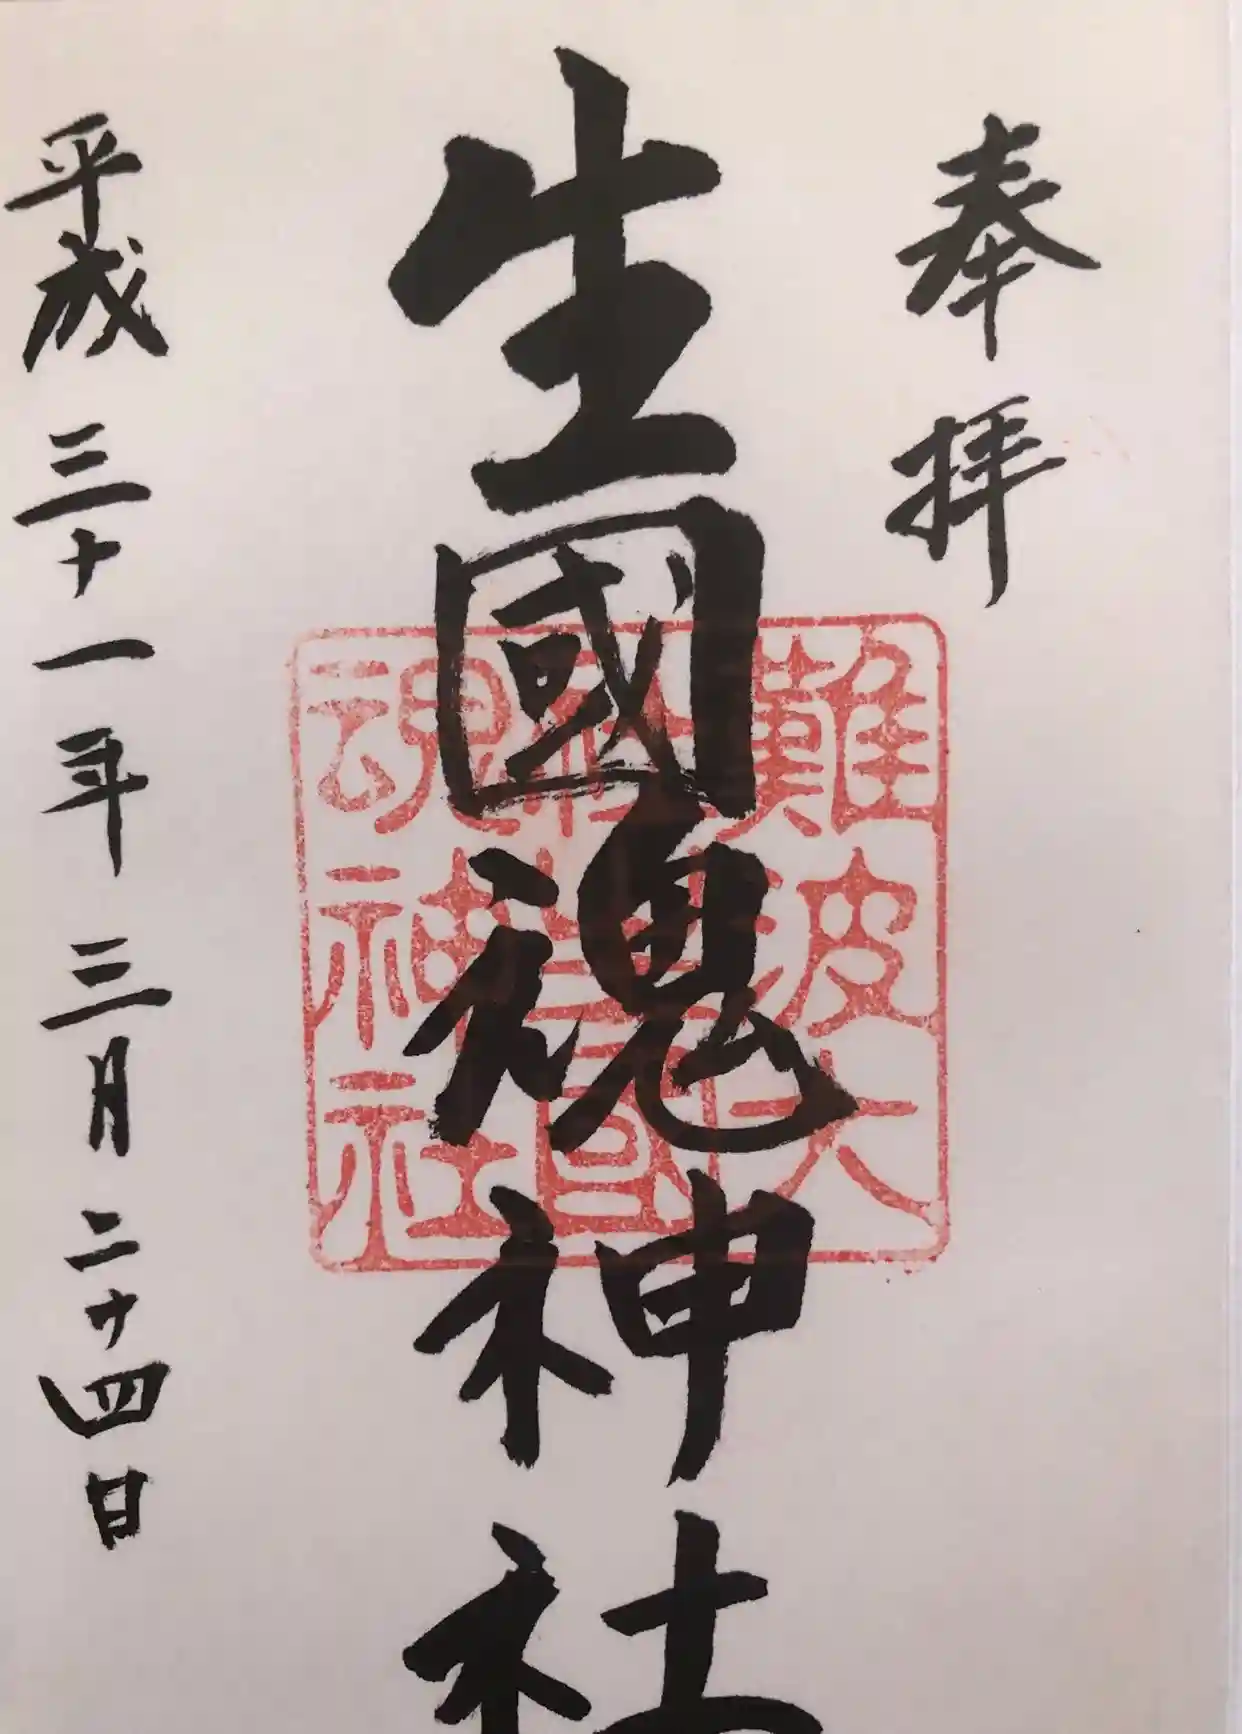 奉拝
生國魂神社
難波大
社生國
魂神社
平成三十一年三月二十四日